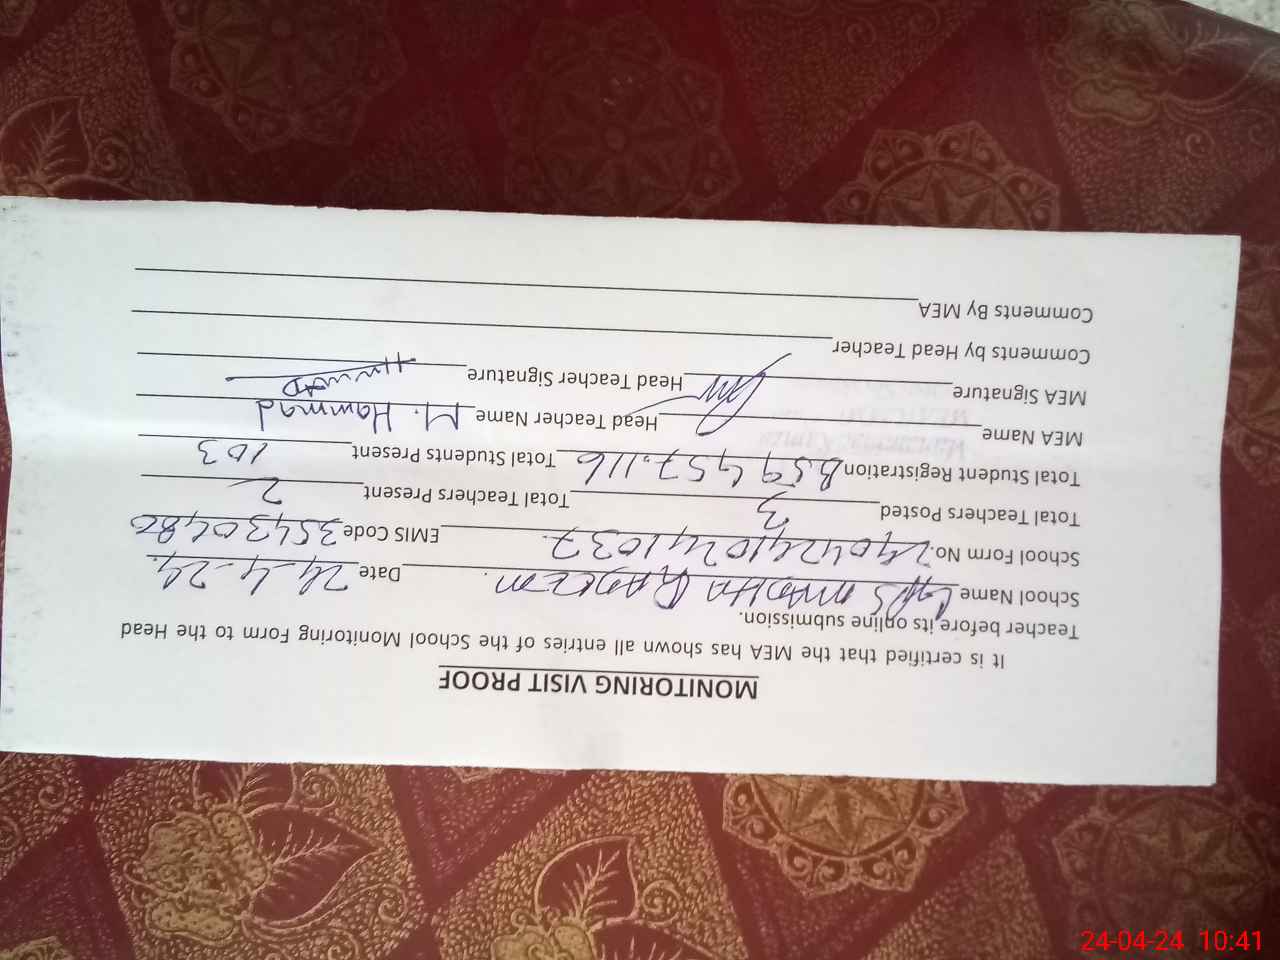 MONITORING VISIT PROOF
It is certified that the MEA has shown all entries of the School Monitoring Form to the Head
Teacher before its online submission.
School Name GPS Date 24-4-24.
School Form No. 240424104241037. EMIS Code 35430480
Total Teachers Posted 3 Total Teachers Present 2
Total Student Registration B.59 G.57.116 Total Students Present 103
MEA Name Head Teacher Name M. Hammad
MEA Signature Head Teacher Signature
Comments by Head Teacher
Comments By MEA
24-04-24 10:41